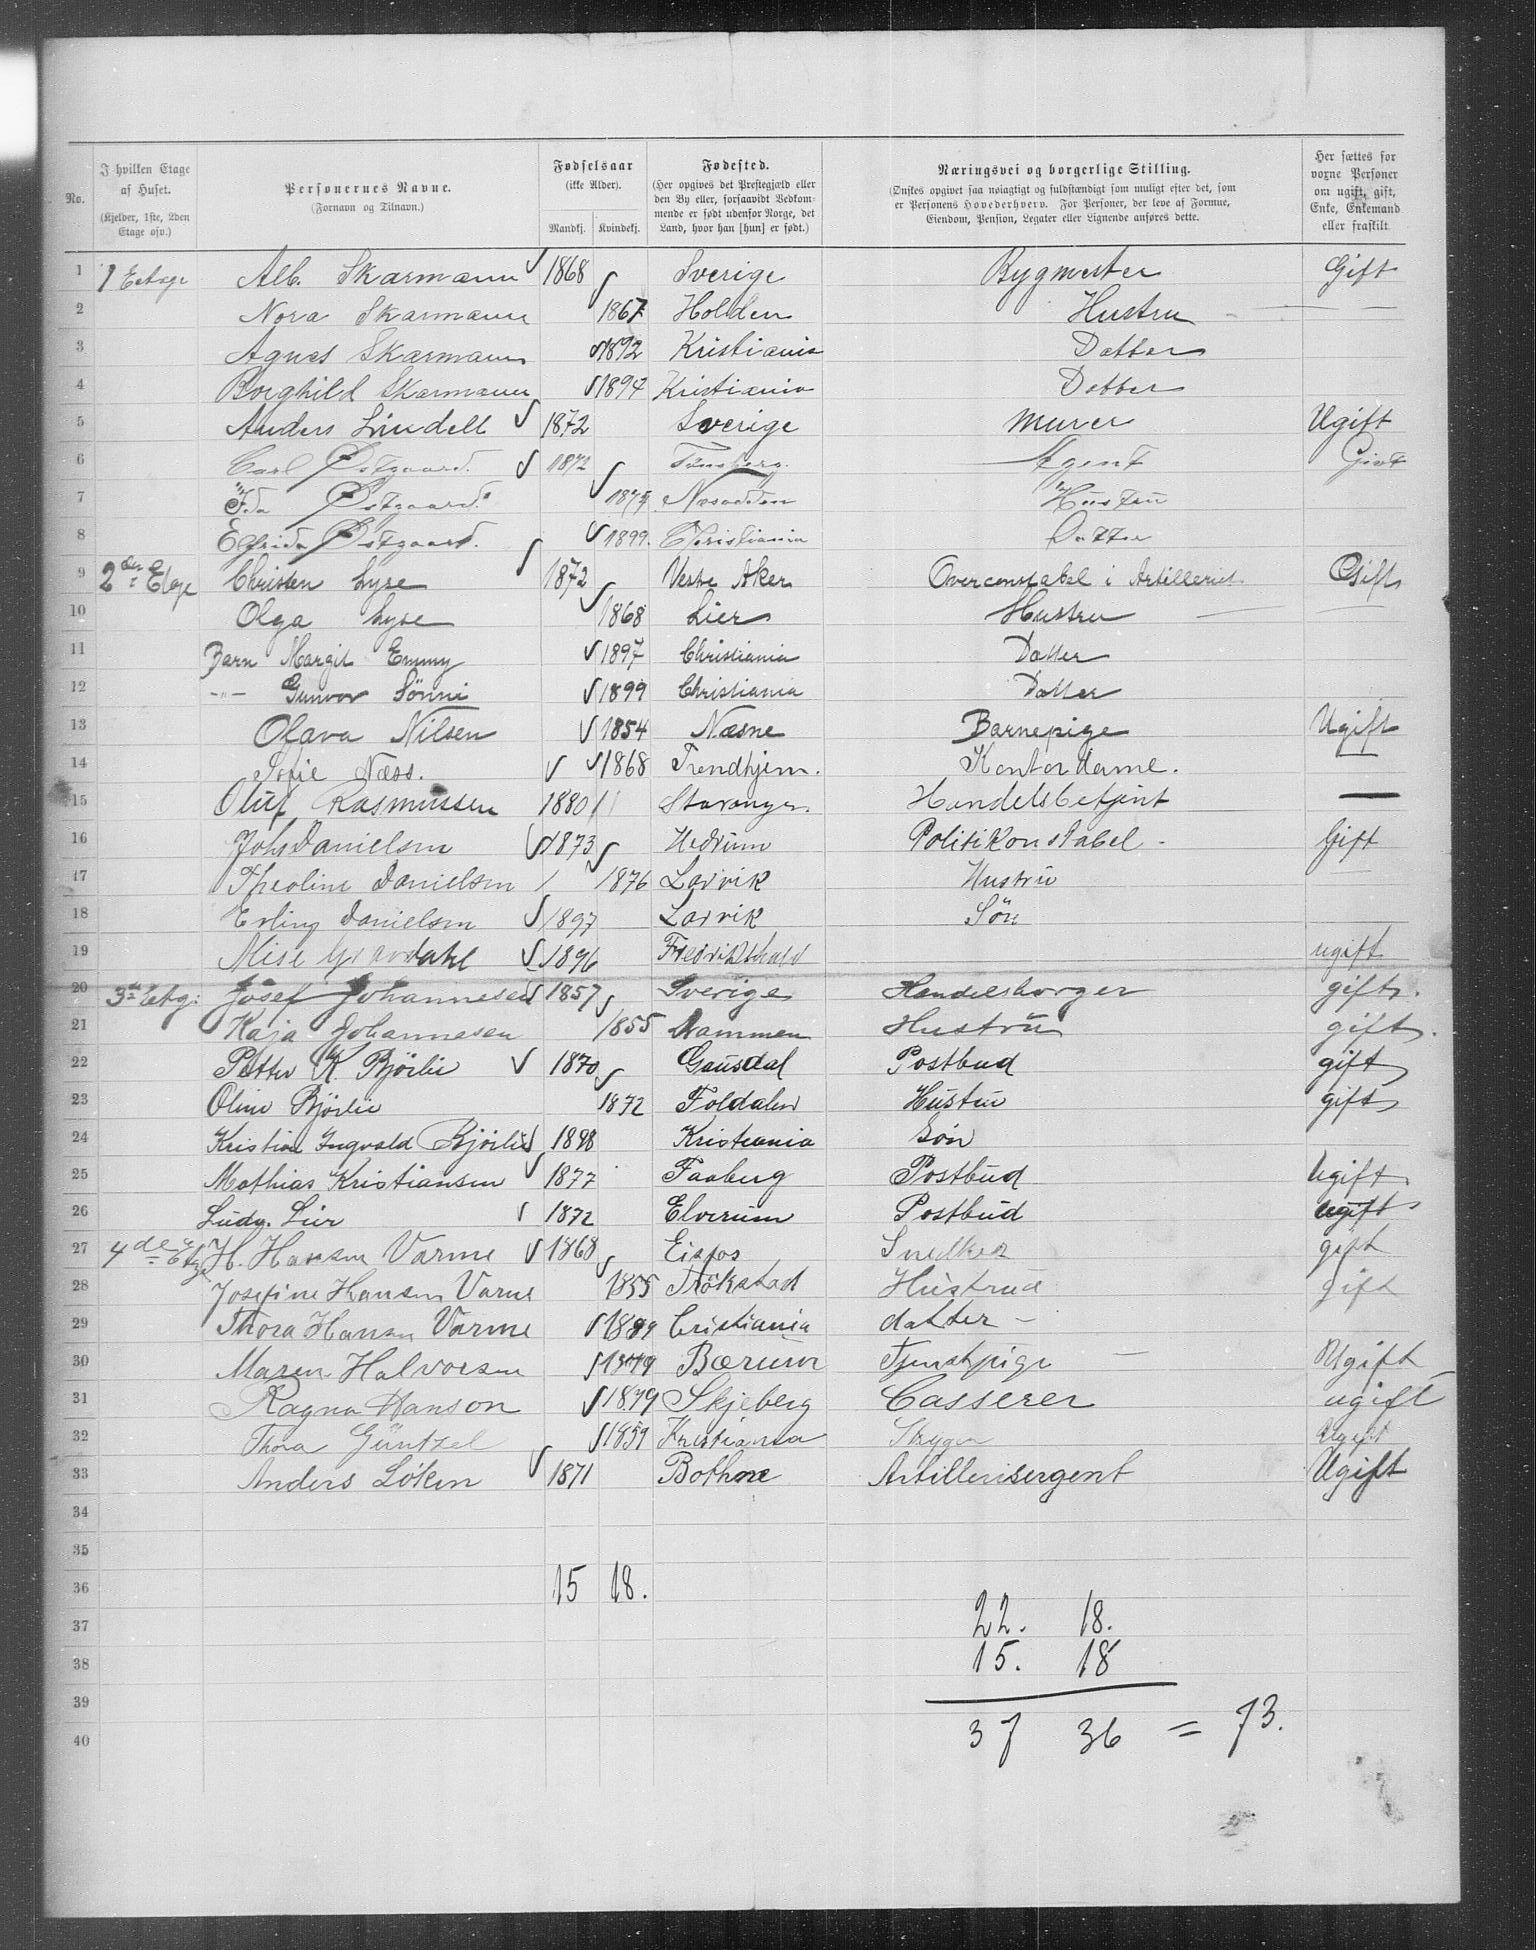 No.
I hvilken Etage af Huset. (Kjelder, 1ste, 2den Etage osv.)
Personernes Navne. (Fornavn og Tilnavn.)
Fødselsaar (ikke Alder). Mandkj. Kvindekj.
Fødested. (Her opgives det Prestegjæld eller den By eller, forsaavidt Vedkommende er født udenfor Norge, det Land, hvor han [hun] er født.)
Næringsvei og borgerlige Stilling. (Ønskes opgivet saa nøiagtigt og fuldstændigt som muligt efter det, som er Personens Hovederhverv. For Personer, der leve af Formue, Eiendom, Pension, Legater eller Lignende anføres dette.
Her sættes for voxne Personer om ugift, gift, Enke, Enkemand eller fraskilt.
1 1 Eetage Alb. Skarmann 1868 Sverige Bygmester Gift
2 Nora Skarmann 1867 Holden Hustru — —
3 Agnes Skarmann 1892 Kristiania Datter
4 Borghild Skarmann 1894 Kristiania Datter
5 Anders Lindell 1872 Sverige Murer Ugift
6 Carl Østgaard. 1872 Tønsberg. Agent Givt
7 Ida Østgaard. 1875 Nesodden Hustru
8 Elfrida Østgaard. 1899. Christiania Datter
9 2den Etage Christen Lyse 1872 Vestre Aker Overconstabel i Artilleriet Gift
10 Olga Lyse 1868 Lier Hustru —
11 Barn Margit Emmy 1897 Christiania Datter
12 -"- Gunvor Sönni 1899 Christiania Datter
13 Olava Nilsen 1854 Næsne Barnepige Ugift
14 Sofie Næss. 1868 Trondhjem. Kontordame. —
15 Oluf Rasmussen 1880 Stavanger. Handelsbetjent —
16 Johs Danielsen 1873 Hedrum Politikonstabel - Gift
17 Theoline Danielsen 1876 Larvik Hustru
18 Erling Danielsen 1897 Larvik Søn
19 1896 Fredrikshald ugift
20 3die Etg: Josef Johannesen 1857 Sverige Handelsborger gift.
21 Kaja Johannesen 1855 Drammen Hustru gift.
22 Petter K. Bjørlie 1870 Gausdal Postbud gift
23 Oline Bjørlie 1872 Foldalen Hustru gift
24 Kristian Ingvald Bjørlie 1898 Kristiania Søn
25 Mathias Kristiansen 1877 Faaberg Postbud Ugift
26 Ludv. Lier 1872 Elverum Postbud ugift
27 4de Etge H. Hansen Varme 1868 Snedker gift
28 Josefine Hansen Varme 1855 Trökstad Hustrue gift
29 Thora Hansen Varme 1899 Cristiania datter -
30 Maren Halvorsen 1879 Bærum Tjenstpige — Ugift
31 Ragna Hanson 1879 Skjeberg Casserer ugift
32 Thora Güntzel 1859 Kristiania Ugift
33 Anders Löken 1871 Bothne Artillerisergent Ugift
34
35
36 15 18.
37 22. 18.
38 15. 18
39
40 37 36 = 73.